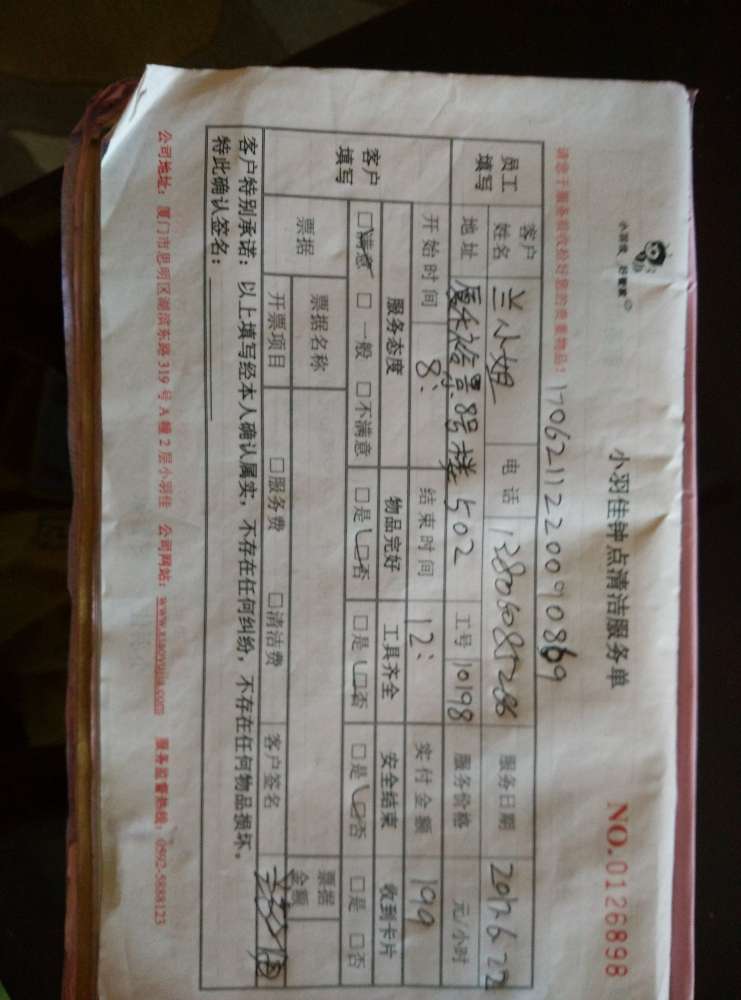 小羽佳 好管家
小羽佳钟点清洁服务单
NO.0126898
请您于服务前收检好您的贵重物品！
员工填写 客户姓名 兰小姐 电话 服务日期 2017.6.22
地址 8号楼502 工号 10198 服务价格 元/小时
开始时间 8: 结束时间 12: 实付金额 199
客户填写 服务态度 物品完好 工具齐全 安全结束 收到卡片
☑满意 □一般 □不满意 □是 ☑否 □是 ☑否 □是 ☑否 □是 □否
票据 票据名称 票据金额
开票项目 □服务费 □清洁费 客户签名
客户特别承诺：以上填写经本人确认属实，不存在任何纠纷，不存在任何物品损坏。
特此确认签名：
公司地址：厦门市思明区湖滨东路319号A幢2层小羽佳 公司网站：www.xiaoyujia.com 服务监督热线：0592-5888123